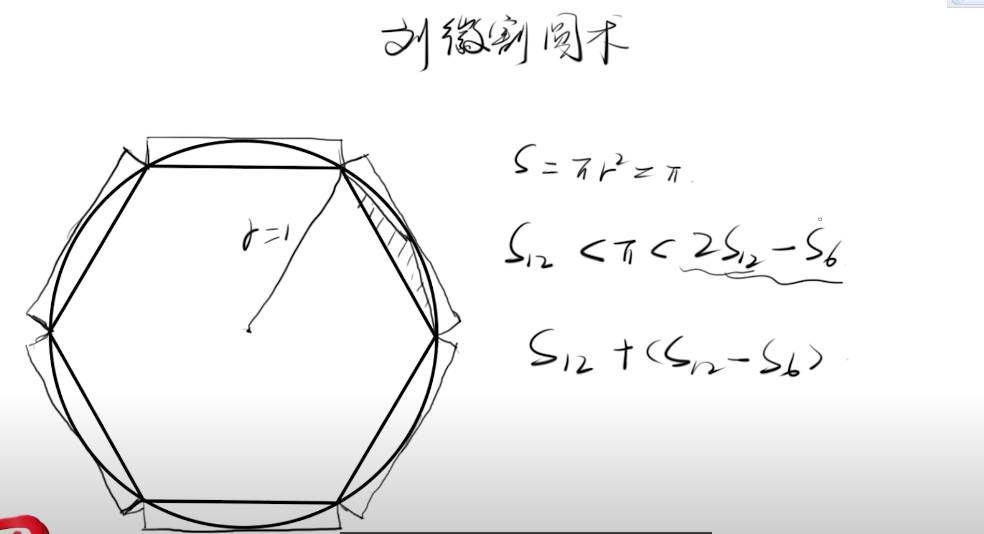 刘徽割圆术
S = πr² = π.
r=1
S₁₂ < π < 2S₁₂ - S₆
S₁₂ + (S₁₂ - S₆)